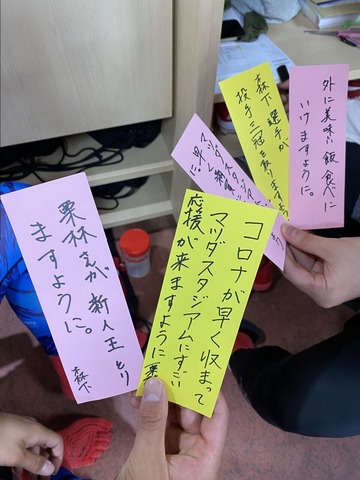 外に美味い飯食べに
いけますように。
森下選手が、
投手三冠を取りますよう
マツダスタジ
コロナが早く収まって
マツダスタジアムにすごい
応援が来ますように 栗
栗林さんが新人王とり
ますように。
森下